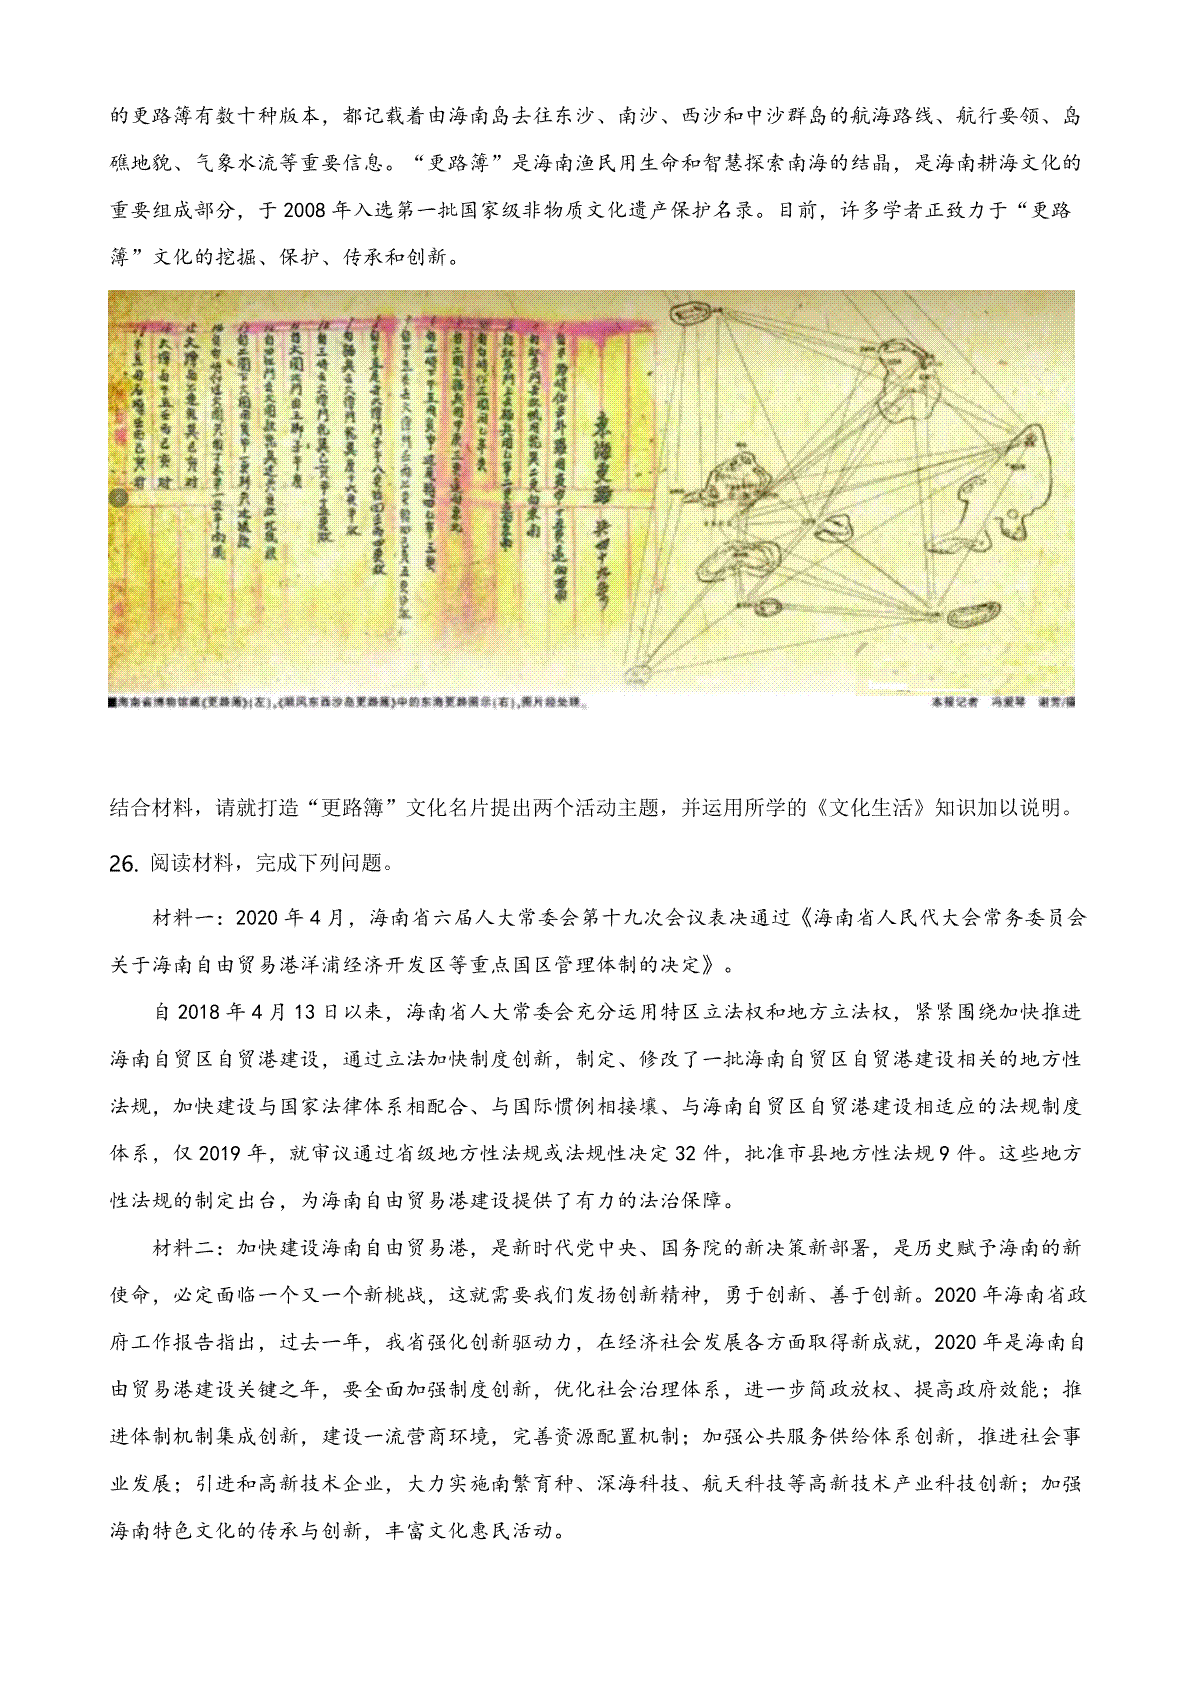 的更路簿有数十种版本，都记载着由海南岛去往东沙、南沙、西沙和中沙群岛的航海路线、航行要领、岛
礁地貌、气象水流等重要信息。“更路簿”是海南渔民用生命和智慧探索南海的结晶，是海南耕海文化的
重要组成部分，于 2008 年入选第一批国家级非物质文化遗产保护名录。目前，许多学者正致力于“更路
簿”文化的挖掘、保护、传承和创新。
東海更路
■海南省博物馆藏《更路簿》(左),《顺风东西沙岛更路簿》中的东海更路图示(右),图片经处理。
本报记者 冯爱琴 谢芳/摄
结合材料，请就打造“更路簿”文化名片提出两个活动主题，并运用所学的《文化生活》知识加以说明。
26. 阅读材料，完成下列问题。
材料一：2020 年 4 月，海南省六届人大常委会第十九次会议表决通过《海南省人民代大会常务委员会
关于海南自由贸易港洋浦经济开发区等重点国区管理体制的决定》。
自 2018 年 4 月 13 日以来，海南省人大常委会充分运用特区立法权和地方立法权，紧紧围绕加快推进
海南自贸区自贸港建设，通过立法加快制度创新，制定、修改了一批海南自贸区自贸港建设相关的地方性
法规，加快建设与国家法律体系相配合、与国际惯例相接壤、与海南自贸区自贸港建设相适应的法规制度
体系，仅 2019 年，就审议通过省级地方性法规或法规性决定 32 件，批准市县地方性法规 9 件。这些地方
性法规的制定出台，为海南自由贸易港建设提供了有力的法治保障。
材料二：加快建设海南自由贸易港，是新时代党中央、国务院的新决策新部署，是历史赋予海南的新
使命，必定面临一个又一个新挑战，这就需要我们发扬创新精神，勇于创新、善于创新。2020 年海南省政
府工作报告指出，过去一年，我省强化创新驱动力，在经济社会发展各方面取得新成就，2020 年是海南自
由贸易港建设关键之年，要全面加强制度创新，优化社会治理体系，进一步简政放权、提高政府效能；推
进体制机制集成创新，建设一流营商环境，完善资源配置机制；加强公共服务供给体系创新，推进社会事
业发展；引进和高新技术企业，大力实施南繁育种、深海科技、航天科技等高新技术产业科技创新；加强
海南特色文化的传承与创新，丰富文化惠民活动。